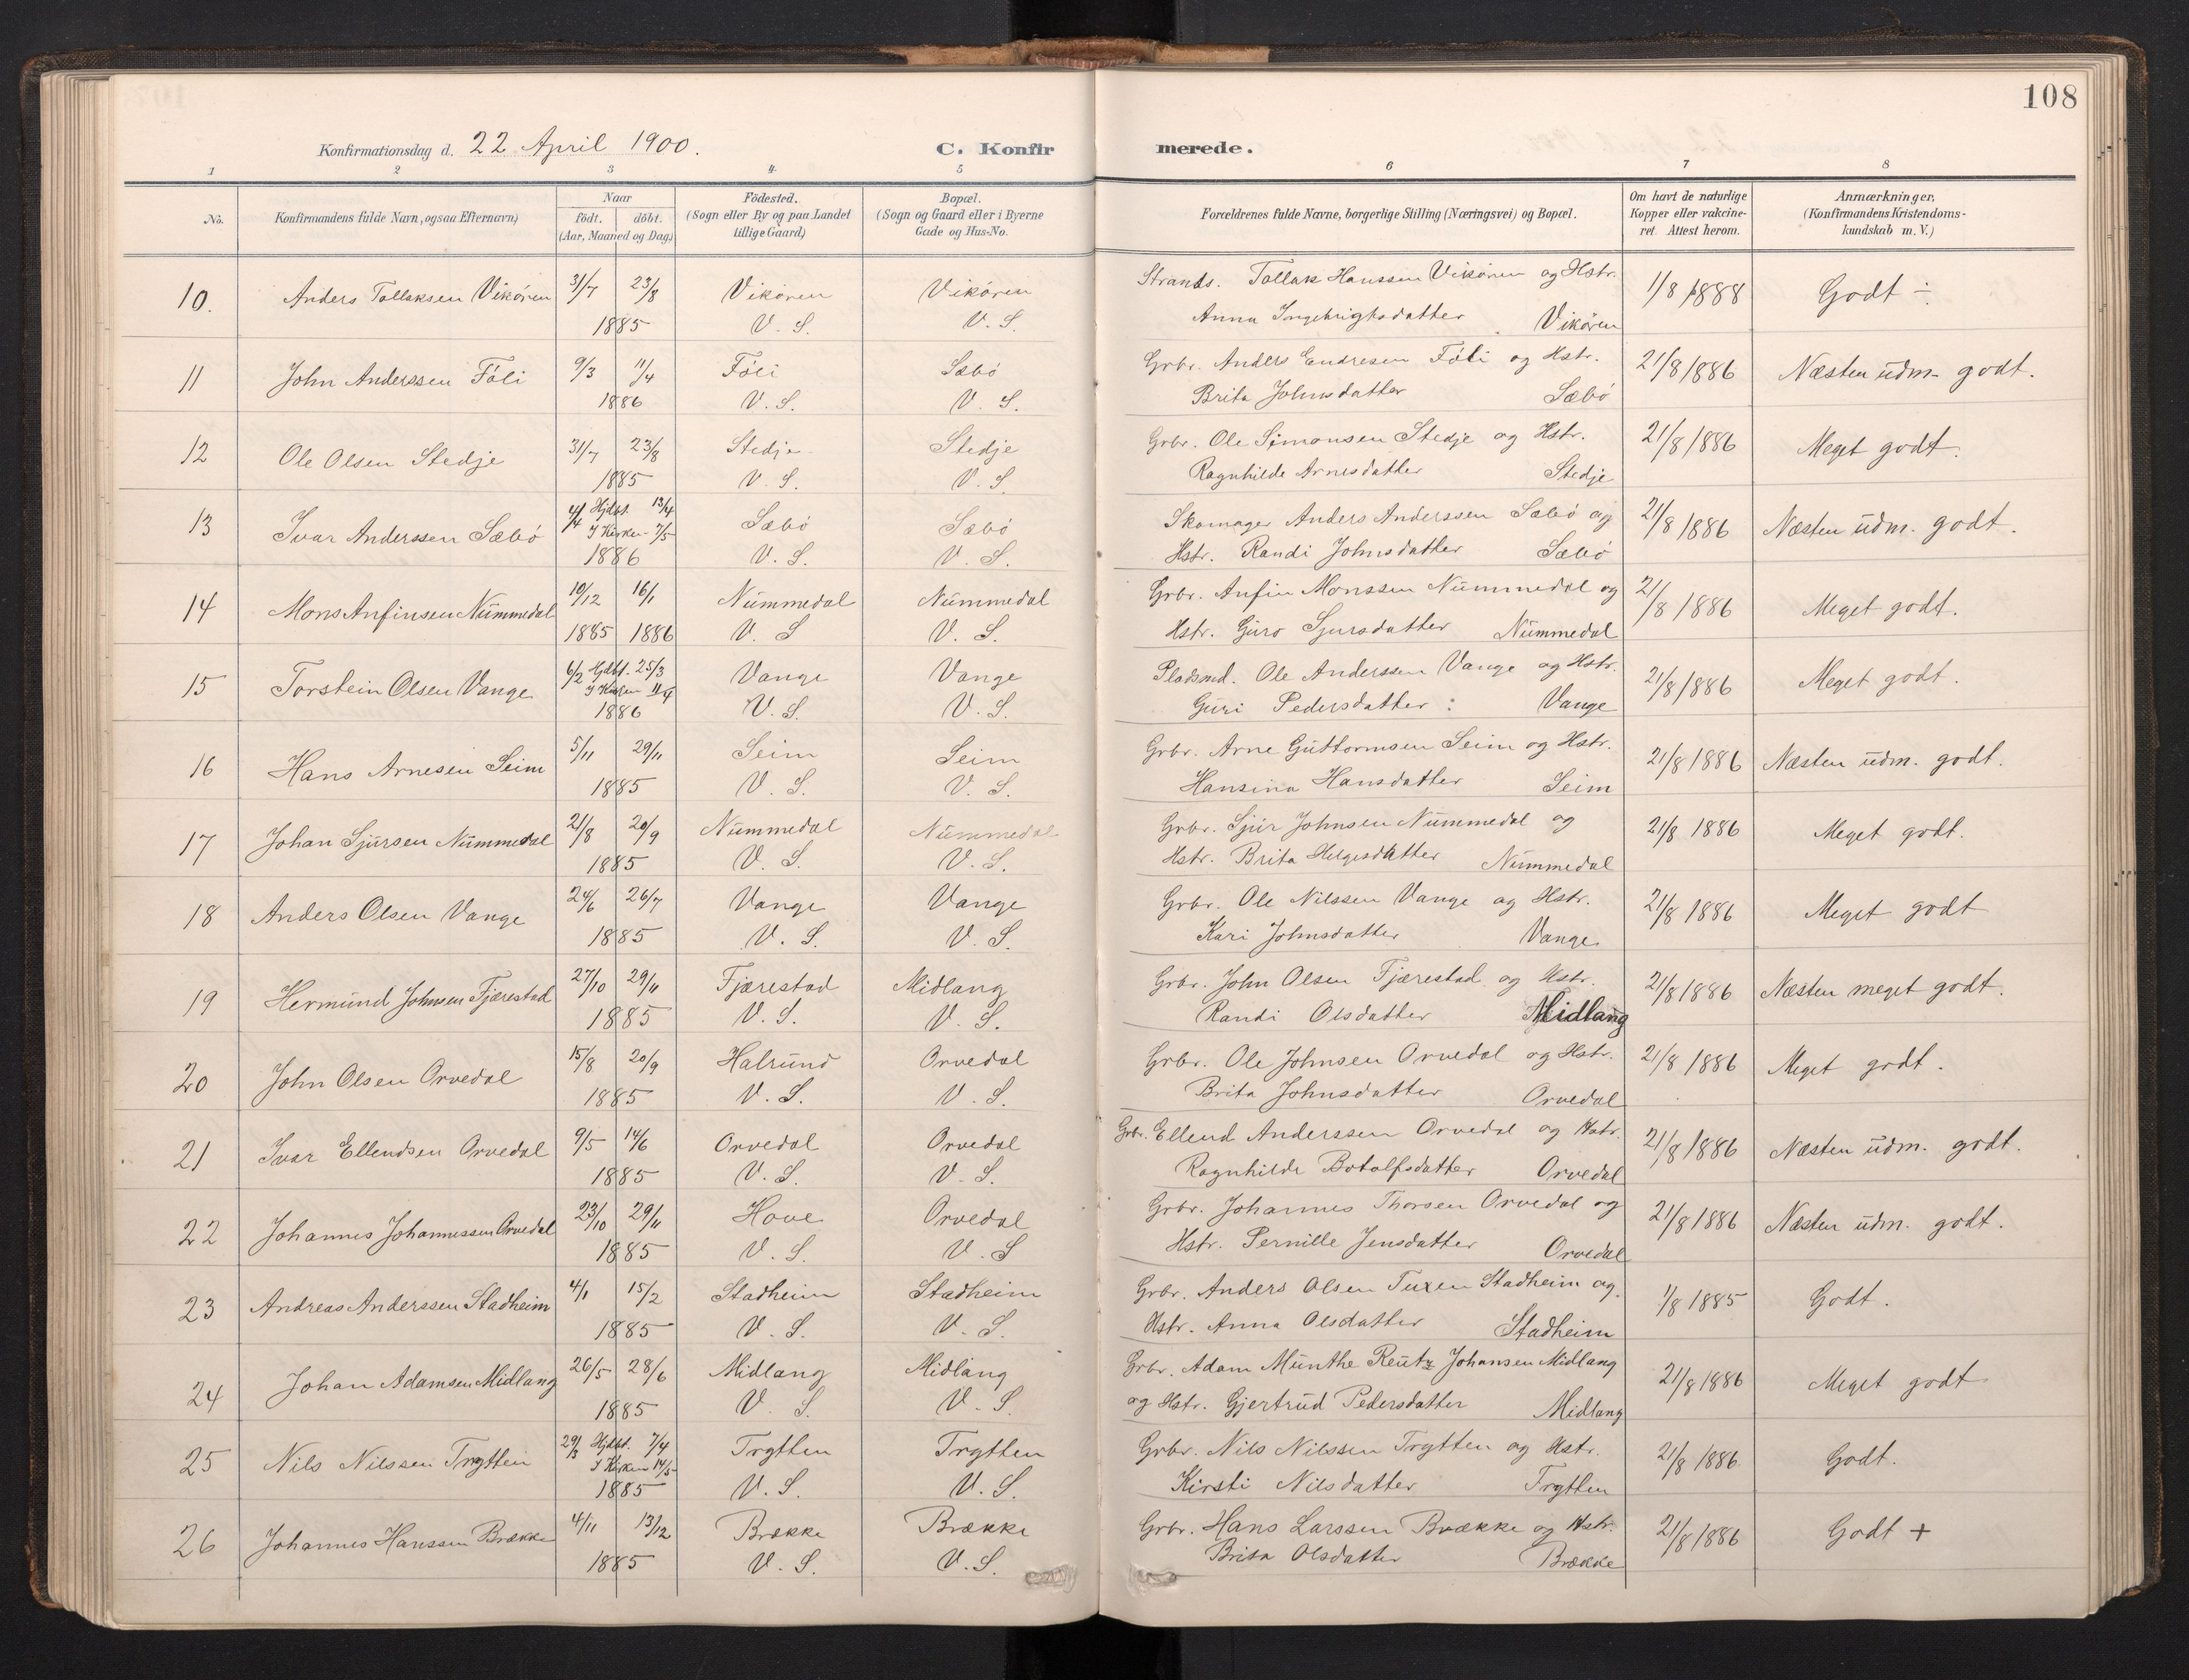 108
Konfirmationsdag d. 22 April 1900.
C. Konfirmerede.
1 2 3 4 5 6 7 8
No. | Konfirmandens fulde Navn, ogsaa Efternavn) | Naar født. døbt. (Aar, Maaned og Dag.) | Fødested. (Sogn eller By og paa Landet tillige Gaard) | Bopæl. (Sogn og Gaard eller i Byerne Gade og Hus-No. | Forældrenes fulde Navne, borgerlige Stilling (Næringsvei) og Bopæl. | Om havt de naturlige Kopper eller vakcineret. Attest herom. | Anmærkninger, (Konfirmandens Kristendomskundskab m. V.)
10. Anders Tollaksen Vikøren 31/7 23/8 Vikøren Vikøren Strands. Tollak Hanssen Vikøren og Hstr. 1/8 1888 Godt ÷
1885 V. S. V. S. Anna Ingebrigtsdatter Vikøren
11 John Anderssen Føli 9/3 11/4 Føli Sæbø Grbr. Anders Endresen Føli og Hstr. 21/8 1886 Næsten udm. godt.
1886 V. S. V. S. Brita Johnsdatter Sæbø
12 Ole Olsen Stedje 31/7 23/8 Stedje Stedje Grbr. Ole Simonsen Stedje og Hstr. 21/8 1886 Meget godt.
1885 V. S. V. S. Ragnhilde Arnesdatter Stedje
13 Ivar Anderssen Sæbø 4/4 Hjdbt. 13/4 Sæbø Sæbø Skomager Anders Anderssen Sæbø og 21/8 1886 Næsten udm. godt.
I Kirken 7/5
1886 V. S. V. S. Hstr. Randi Johnsdatter Sæbø
14 Mons Anfinsen Nummedal 10/12 16/1 Nummedal Nummedal Grbr. Anfin Monssen Nummedal og 21/8 1886 Meget godt.
1885 1886 V. S V. S. Hstr. Guro Sjursdatter Nummedal
15 Torstein Olsen Vange 6/2 Hjdbt. 25/3 Vange Vange Pladsmd. Ole Anderssen Vange og Hstr. 21/8 1886 Meget godt.
I Kirken 11/4
1886 V. S. V. S. Guri Pedersdatter : Vange
16 Hans Arnesen Seim 5/11 29/11 Seim Seim Grbr. Arne Guttormsen Seim og Hstr. 21/8 1886 Næsten udm. godt.
1885 V. S. V. S. Hansina Hansdatter Seim
17 Johan Sjursen Nummedal 21/8 20/9 Nummedal Nummedal Grbr. Sjur Johnsen Nummedal og 21/8 1886 Meget godt.
1885 V. S. V. S. Hstr. Brita Helgesdatter Nummedal
18 Anders Olsen Vange 24/6 26/7 Vange Vange Grbr. Ole Nilssen Vange og Hstr. 21/8 1886 Meget godt
1885 V. S. V. S. Kari Johnsdatter Vange
19 Hermund Johnsen Fjærestad 27/10 29/11 Fjærestad Midlang Grbr. John Olsen Fjærestad og Hstr. 21/8 1886 Næsten meget godt.
1885 V. S. V. S. Randi Olsdatter Midlang
20 John Olsen Orvedal 15/8 20/9 Halrund Orvedal Grbr. Ole Johnsen Orvedal og Hstr. 21/8 1886 Meget godt.
1885 V. S. V. S. Brita Johnsdatter Orvedal
21 Ivar Ellendsen Orvedal 9/5 14/6 Orvedal Orvedal Grbr. Ellend Anderssen Orvedal og Hstr. 21/8 1886 Næsten udm. godt.
1885 V. S. V. S. Ragnhilde Botolfsdatter Orvedal
22 Johannes Johannessen Orvedal 23/10 29/11 Hove Orvedal Grbr. Johannes Thorsen Orvedal og 21/8 1886 Næsten udm. godt.
1885 V. S. V. S Hstr. Pernille Jensdatter Orvedal
23 Andreas Anderssen Stadheim 4/1 15/2 Stadheim Stadheim Grbr. Anders Olsen Tuxen Stadheim og 1/8 1885 Godt.
1885 V. S. V. S. Hstr. Anna Olsdatter Stadheim
24 Johan Adamsen Midlang 26/5 28/6 Midlang Midlang Grbr. Adam Munthe Reutz Johansen Midlang 21/8 1886 Meget godt
1885 V. S. V. S. og Hstr. Gjertrud Pedersdatter Midlang
25 Nils Nilssen Trytten 29/3 Hjdbt. 7/4 Trytten Trytten Grbr. Nils Nilssen Trytten og Hstr. 21/8 1886 Godt.
I Kirken 14/5
1885 V. S. V. S. Kirsti Nilsdatter Trytten
26 Johannes Hanssen Brække 4/11 13/12 Brække Brække Grbr. Hans Larssen Brække og Hstr. 21/8 1886 Godt +
1885 V. S. V. S. Brita Olsdatter Brække